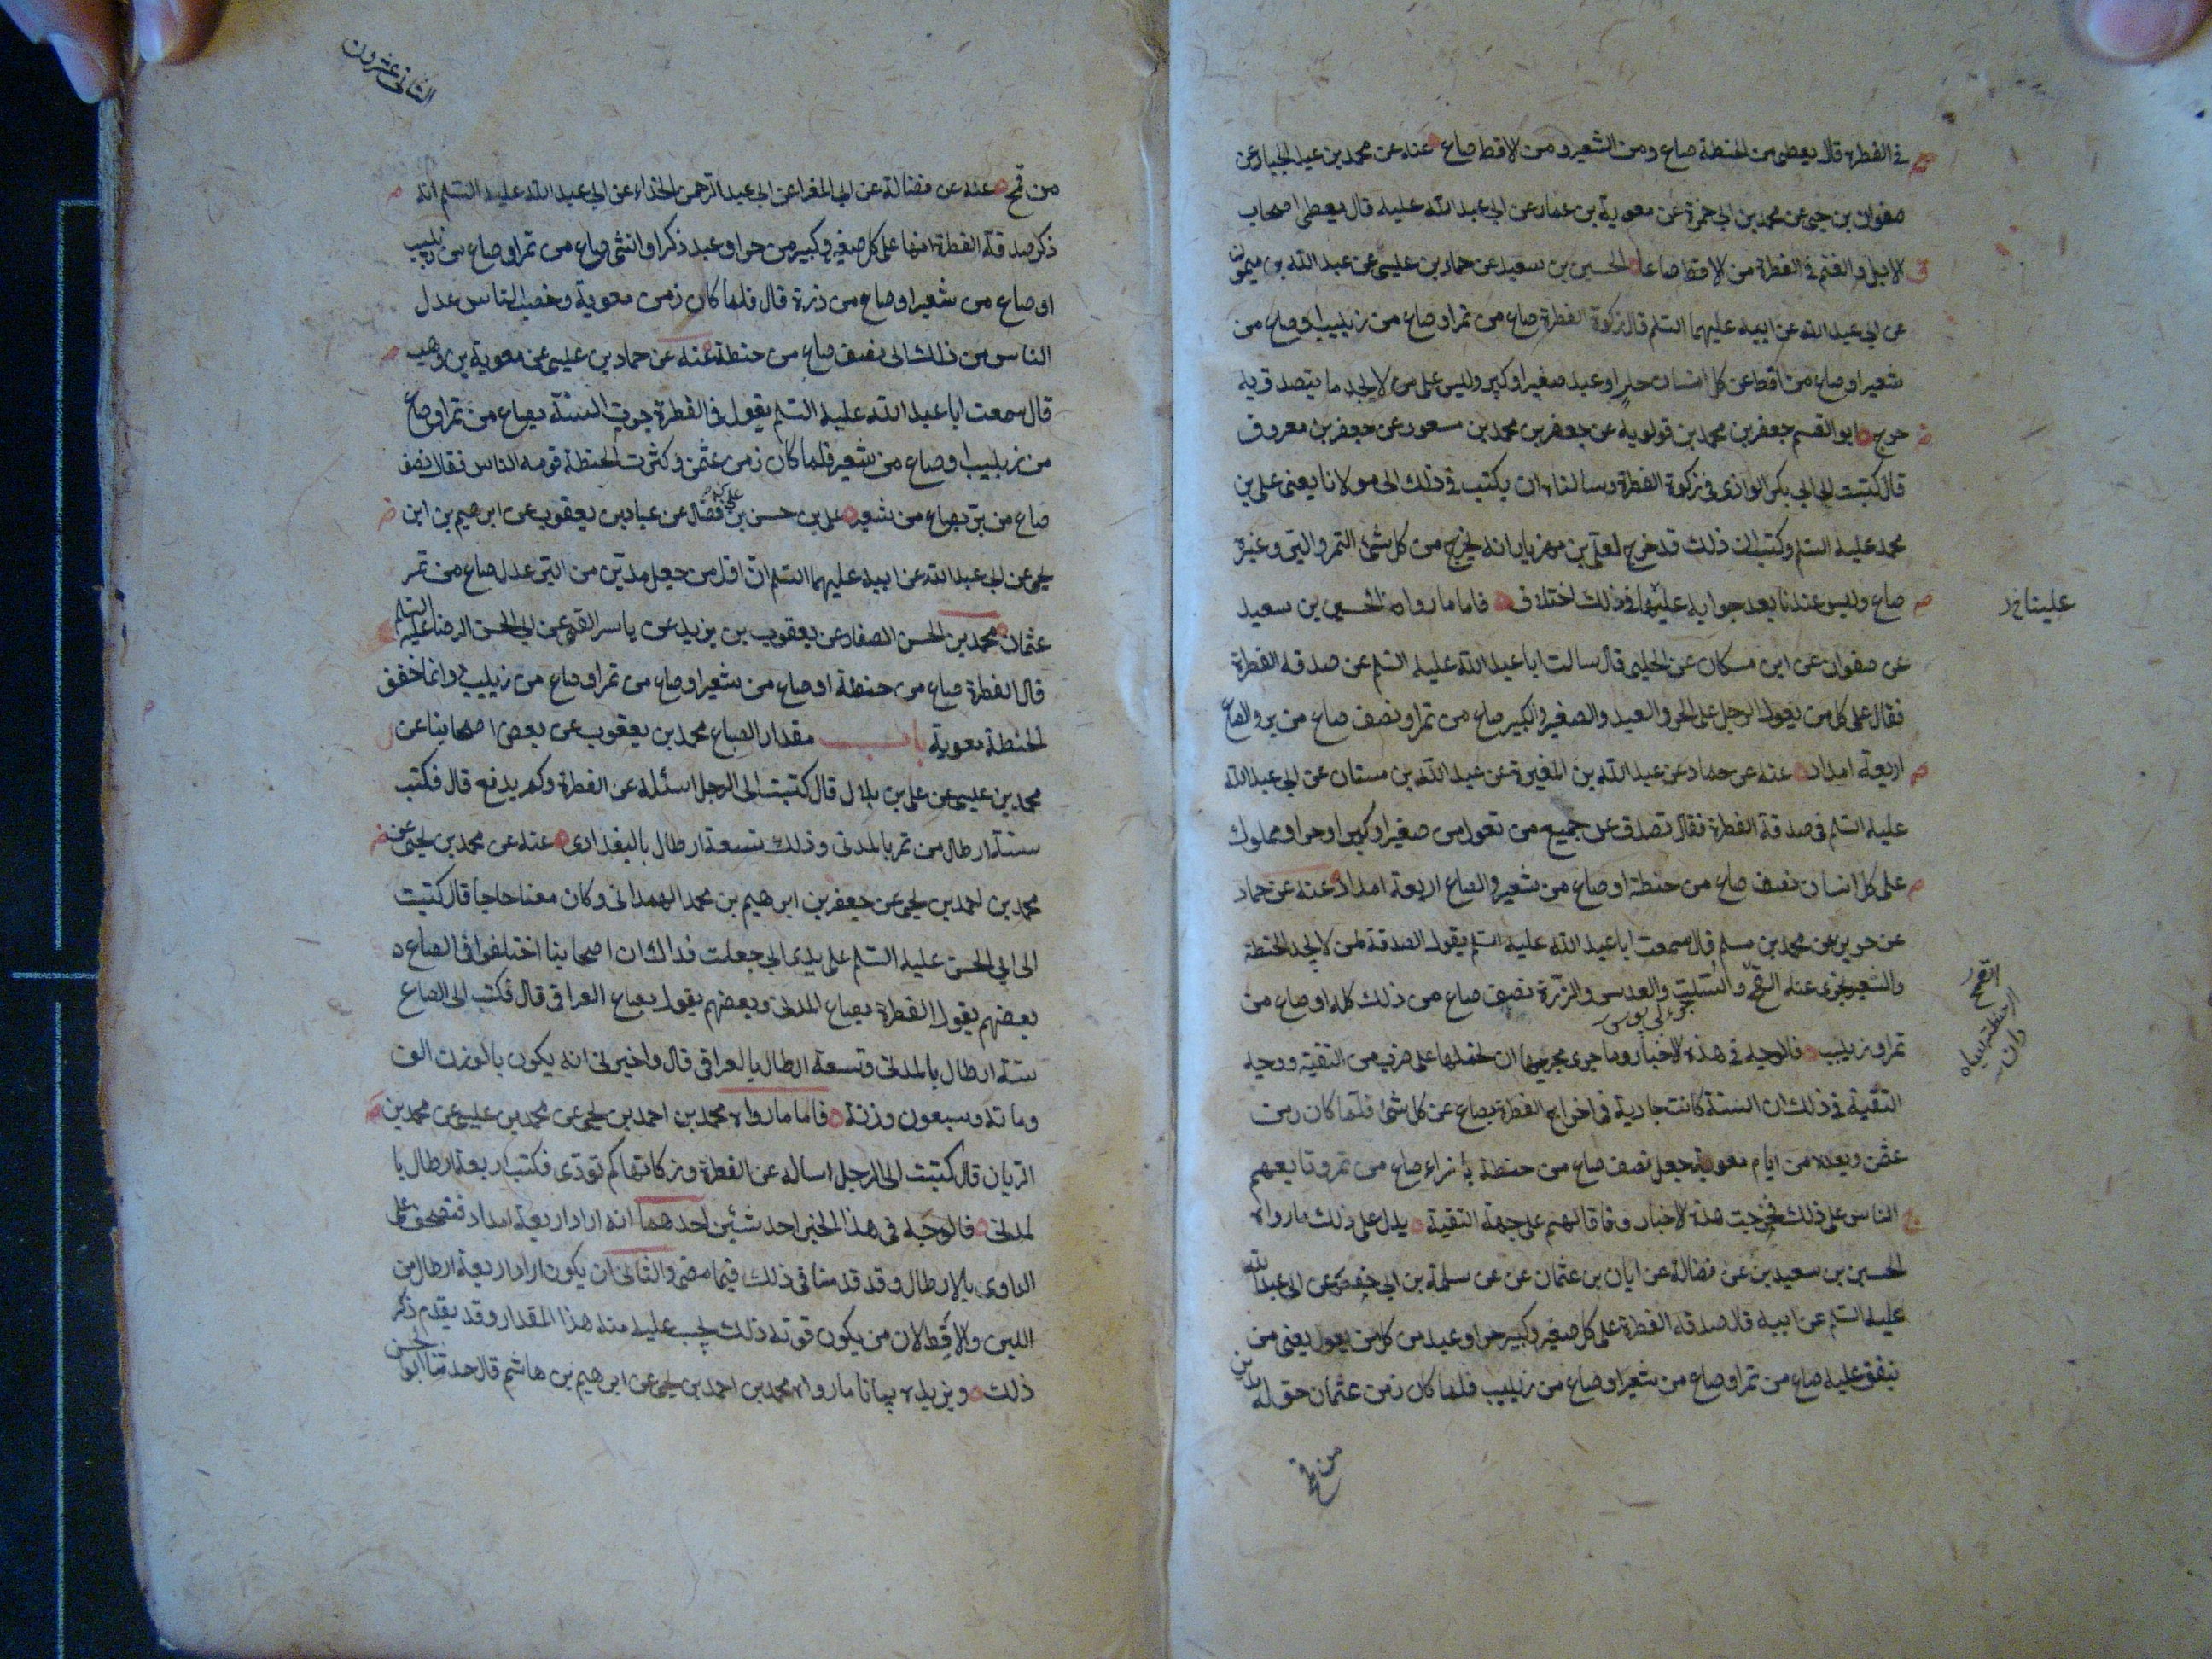 في الفطرة قال يعطى من الحنطة صاع ومن الشعير ومن الاقط صاع عنه عن محمد بن عبد الجبار عن
صفوان بن يحيى عن محمد بن ابي حمزة عن معوية بن عمار عن ابي عبد الله عليه قال يعطى اصحاب
الابل والغنم في الفطرة من الاقط صاعا الحسين بن سعيد عن حماد بن عليسى عن عبد الله بن ميمون
عن ابي عبد الله عن ابيه عليهما السلم قال زكوة الفطرة صاع من تمر او صاع من زبيب او صاع من
شعير او صاع من اقط عن كل انسان حر او عبد صغير او كبير وليس على من لا يجد ما يتصدق به
حرج ابو القسم جعفر بن محمد بن قولويه عن جعفر بن محمد بن مسعود عن جعفر بن معروف
قال كتبت الى ابي بكر الرازى في زكوة الفطرة وسالناه ان يكتب في ذلك الى مولانا يعنى على بن
محمد عليه السلم وكتب ان ذلك قد خرج لعلى بن مهزيار انه يخرج من كل شئ التمر والبر وغيره
صاع وليس عندنا بعد جوابه عليها في ذلك اختلاف فاما ما رواه الحسين بن سعيد
علينا خ
عن صفوان عن ابن مسكان عن الحلبى قال سالت ابا عبد الله عليه السلم عن صدقه الفطرة
فقال على كل من يعول الرجل على الحر والعبد والصغير والكبير صاع من تمر او نصف صاع من بر والصاع
اربعة امداد عنه عن حماد عن عبد الله بن المغيرة عن عبد الله بن سنان عن ابي عبد الله
عليه السلم في صدقة الفطرة فقال تصدق عن جميع من تعول من صغير او كبير او حر او مملوك
على كل انسان نصف صاع من حنطة او صاع من شعير والصاع اربعة امداد عنه عن حماد
عن حريز عن محمد بن مسلم قال سمعت ابا عبد الله عليه السلم يقول الصدقة لمن لا يجد الحنطة
والشعير يجزى عنه القمح والسلت والعدس والذرة نصف صاع من ذلك كله او صاع من
تمر او زبيب فالوجه في هذه الاخبار وما جرى مجريها ان نحملها على ضرب من التقية ووجه
التقية في ذلك ان السنة كانت جارية في اخراج الفطرة بصاع عن كل شئ فلما كان زمن
عثمن وبعده من ايام معوية جعل نصف صاع من حنطة بازاء صاع من تمر وتابعهم
الناس على ذلك فخرجت هذه الاخبار وفاقا لهم على جهة التقية يدل على ذلك ما رواه
الحسين بن سعيد بن عن فضالة عن ابان بن عثمان عن عن سلمة بن ابي حفص عن ابي عبد الله
عليه السلم عن ابيه قال صدقه الفطرة على كل صغير وكبير حر او عبد من كل من يعول يعنى من
ينفق عليه صاع من تمر او صاع من شعير او صاع من زبيب فلما كان زمن عثمان حوله مدين
من قمح
الثانى عشرون
من قمح عنه عن فضالة عن ابي المغرا عن ابي عبد الرحمن الحذاء عن ابي عبد الله عليه السلم انه
ذكر صدقة الفطرة انها على كل صغير وكبير من حر او عبد ذكر او انثى صاع من تمر او صاع من زبيب
او صاع من شعير او صاع من ذرة قال فلما كان زمن معوية وخصب الناس عدل
الناس من ذلك الى نصف صاع من حنطة عنه عن حماد بن عليسى عن معوية بن وهب
قال سمعت ابا عبد الله عليه السلم يقول في الفطرة جرت السنة بصاع من تمر او صاع
من زبيب او صاع من شعير فلما كان زمن عثمن وكثرت الحنطة قومه الناس فقال نصف
صاع من بر بصاع من شعير على بن حسن بن على بن فضال عن عباد بن يعقوب عن ابرهيم بن ابى
يحيى عن ابي عبد الله عن ابيه عليهما السلم ان اول من جعل مدين من البر عدل صاع من تمر
عثمان محمد بن الحسن الصفار عن يعقوب بن يزيد عن ياسر القمى عن ابي الحسن الرضا عليه السلم
قال الفطرة صاع من حنطة او صاع من شعير او صاع من تمر او صاع من زبيب وانما خفف
الحنطة معوية باب مقدار الصاع محمد بن يعقوب عن بعض اصحابنا عن
محمد بن عيسى عن على بن بلال قال كتبت الى الرجل اسئله عن الفطرة وكم يدفع قال فكتب
ستة ارطال من تمر بالمدنى وذلك تسعة ارطال بالبغدادى عنه عن محمد بن يحيى عن
محمد بن احمد بن يحيى عن جعفر بن ابرهيم بن محمد الهمدانى وكان معنا حاجا قال كتبت
الى ابي الحسن عليه السلم على يدى ابي جعلت فداك ان اصحابنا اختلفوا في الصاع
بعضهم يقول الفطرة بصاع المدنى وبعضهم يقول بصاع العراقى قال فكتب الى الصاع
ستة ارطال بالمدنى وتسعة ارطال بالعراقى قال واخبرنى انه يكون بالوزن الف
ومائة وسبعون وزنة فاما ما رواه محمد بن احمد بن يحيى عن محمد بن عليسى عن محمد بن
الريان قال كتبت الى الرجل اساله عن الفطرة وزكاتها كم تودى فكتب اربعة ارطال با
لمدنى فالوجه في هذا الخبر احد شئين احدهما انه اراد اربعة امداد فتصحف على
الراوى بالارطال وقد قدمنا في ذلك فيما مضى والثانى ان يكون اراد اربعة ارطال من
اللبن والاقط لان من يكون قوته ذلك يجب عليه منه هذا المقدار وقد يقدم ذكر
ذلك ويزيده بيانا ما رواه محمد بن احمد بن يحيى عن ابرهيم بن هاشم قال حدثنا ابو الحسن